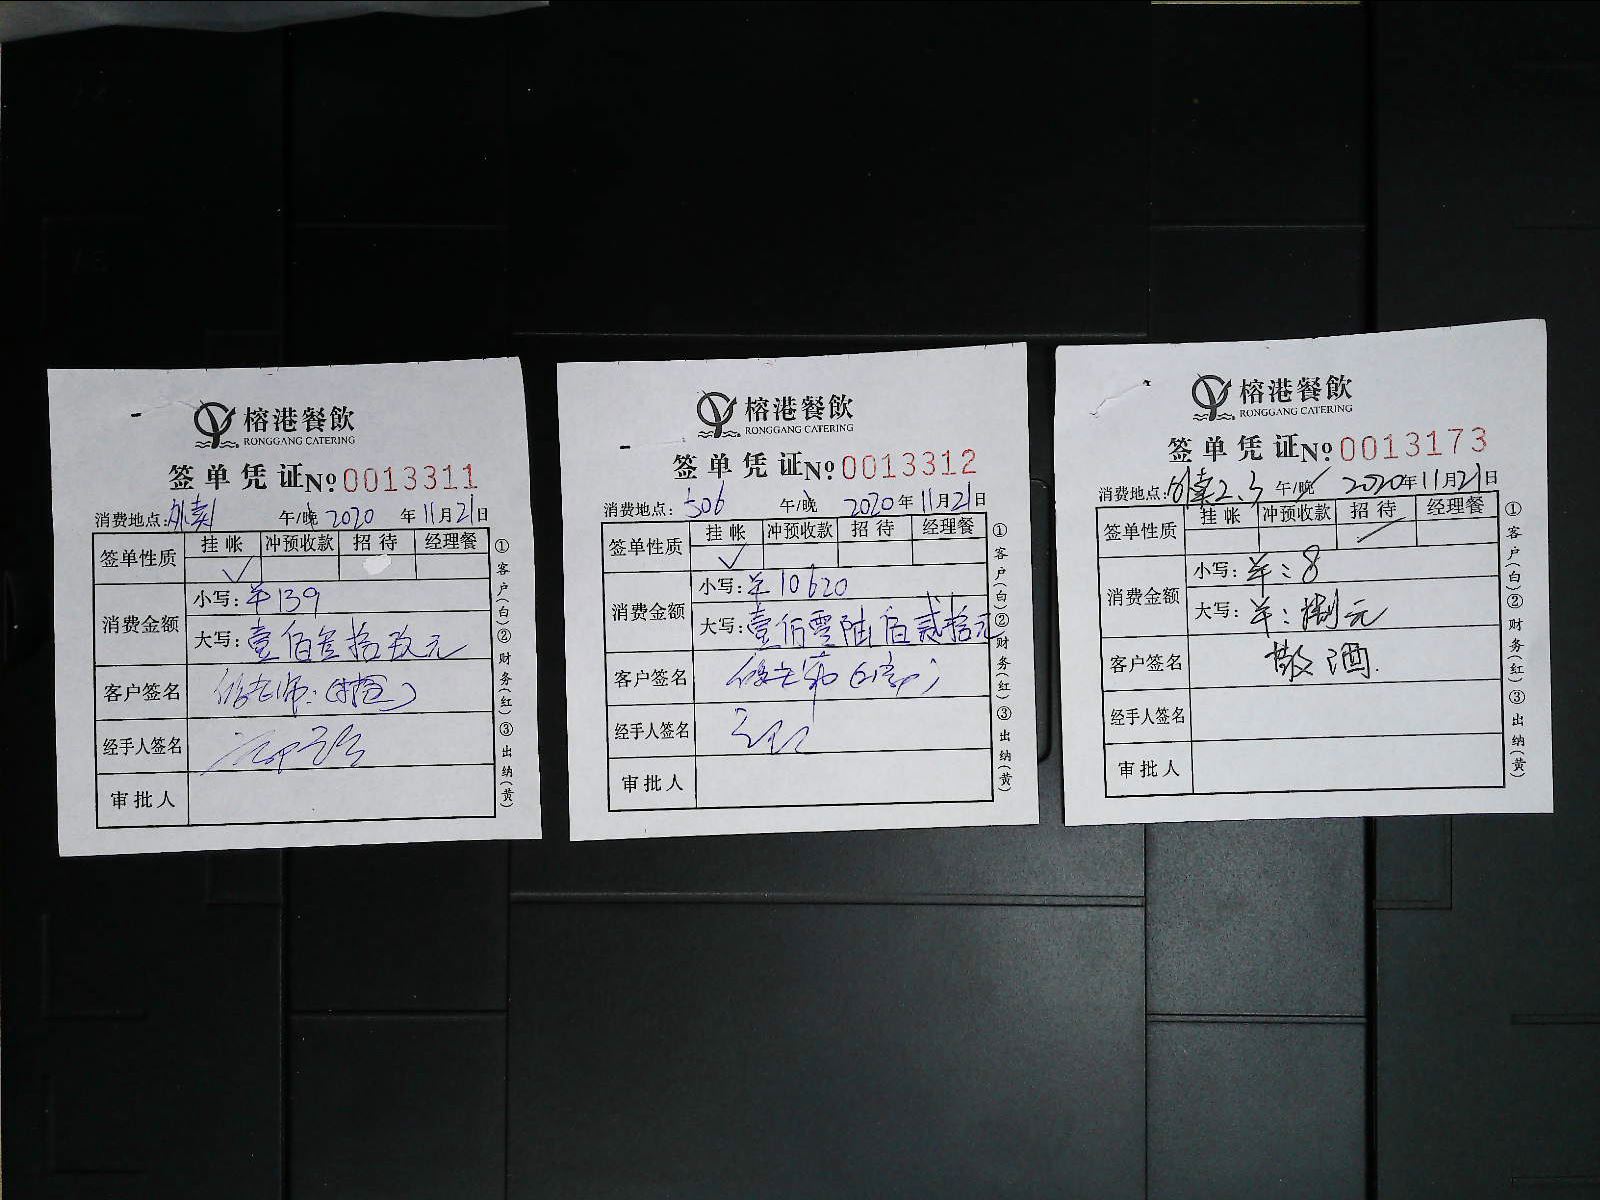 榕港餐飲
RONGGANG CATERING
签单凭证 №0013311
消费地点:外卖1 午/晚 2020年11月21日
签单性质 挂帐 冲预收款 招待 经理餐
✓
消费金额
小写:¥139
大写:壹佰叁拾玖元
客户签名
经手人签名
审批人
①客户(白)②财务(红)③出纳(黄)
榕港餐飲
RONGGANG CATERING
签单凭证 №0013312
消费地点:506 午/晚 2020年11月21日
签单性质 挂帐 冲预收款 招待 经理餐
✓
消费金额
小写:¥10620
大写:壹佰零陆佰贰拾元
客户签名
经手人签名
审批人
①客户(白)②财务(红)③出纳(黄)
榕港餐飲
RONGGANG CATERING
签单凭证 №0013173
消费地点:外卖2、3 午/晚 2020年11月21日
签单性质 挂帐 冲预收款 招待 经理餐
消费金额
小写:¥:8
大写:¥:捌元
客户签名 散酒.
经手人签名
审批人
①客户(白)②财务(红)③出纳(黄)